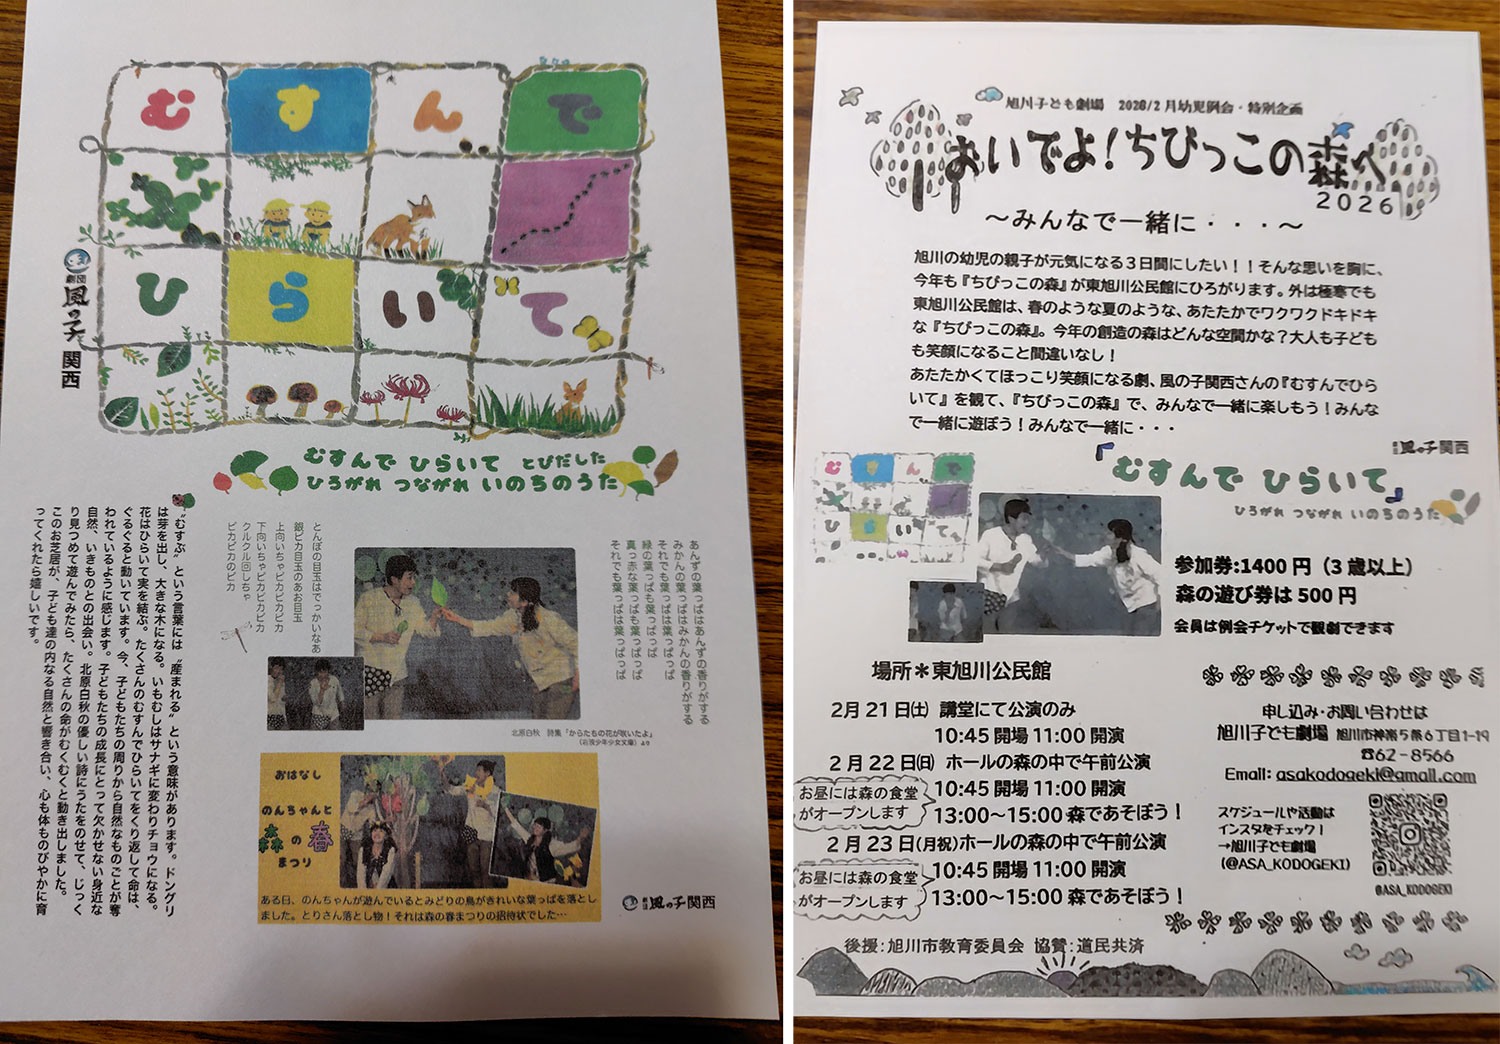 むすんで
ひらいて
劇団 風の子 関西
むすんで ひらいて とびだした
ひろがれ つながれ いのちのうた
“むすぶ”という言葉には“産まれる”という意味があります。ドングリ
は芽を出し、大きな木になる。いもむしはサナギに変わりチョウになる。
花はひらいて実を結ぶ。たくさんのむすんでひらいてをくり返して命は、
ぐるぐると動いています。今、子どもたちの周りから自然なものごとが奪
われているように感じます。子どもたちの成長にとって欠かせない身近な
自然、いきものとの出会い。北原白秋の優しい詩にうたをのせて、じっく
り見つめて遊んでみたら、たくさんの命がむくむくと動き出しました。
このお芝居が、子ども達の内なる自然と響き合い、心も体ものびやかに育
ってくれたら嬉しいです。
とんぼの目玉はでっかいなあ
銀ピカ目玉のあお目玉
上向いちゃピカピカピカ
下向いちゃピカピカピカ
クルクル回しちゃ
ピカピカのピカ
あんずの葉っぱはあんずの香りがする
みかんの葉っぱはみかんの香りがする
それでも葉っぱは葉っぱっぱ
緑の葉っぱも葉っぱっぱ
真っ赤な葉っぱも葉っぱっぱ
それでも葉っぱは葉っぱっぱ
北原白秋 詩集「からたちの花が咲いたよ」
(岩波少年少女文庫)より
おはなし
のんちゃんと
森の春
まつり
ある日、のんちゃんが遊んでいるとみどりの鳥がきれいな葉っぱを落とし
ました。とりさん落とし物！それは森の春まつりの招待状でした…
劇団 風の子関西
旭川子ども劇場 2026/2月幼児例会・特別企画
おいでよ！ちびっこの森へ
2026
～みんなで一緒に・・・～
旭川の幼児の親子が元気になる３日間にしたい！！そんな思いを胸に、
今年も『ちびっこの森』が東旭川公民館にひろがります。外は極寒でも
東旭川公民館は、春のような夏のような、あたたかでワクワクドキドキ
な『ちびっこの森』。今年の創造の森はどんな空間かな？大人も子ども
も笑顔になること間違いなし！
あたたかくてほっこり笑顔になる劇、風の子関西さんの『むすんでひら
いて』を観て、『ちびっこの森』で、みんなで一緒に楽しもう！みんな
で一緒に遊ぼう！みんなで一緒に・・・
劇団 風の子関西
『むすんで ひらいて』
ひろがれ つながれ いのちのうた
むすんで
ひらいて
参加券:1400円（3歳以上）
森の遊び券は500円
会員は例会チケットで観劇できます
場所＊東旭川公民館
2月21日(土) 講堂にて公演のみ
10:45開場 11:00開演
2月22日(日) ホールの森の中で午前公演
10:45開場 11:00開演
お昼には森の食堂
がオープンします
13:00～15:00森であそぼう！
2月23日(月祝)ホールの森の中で午前公演
10:45開場 11:00開演
お昼には森の食堂
がオープンします
13:00～15:00森であそぼう！
申し込み・お問い合わせは
旭川子ども劇場 旭川市神楽5条6丁目1-19
☎62-8566
Email: asakodogeki@gmail.com
スケジュールや活動は
インスタをチェック！
→旭川子ども劇場
(@ASA_KODOGEKI)
@ASA_KODOGEKI
後援:旭川市教育委員会 協賛:道民共済